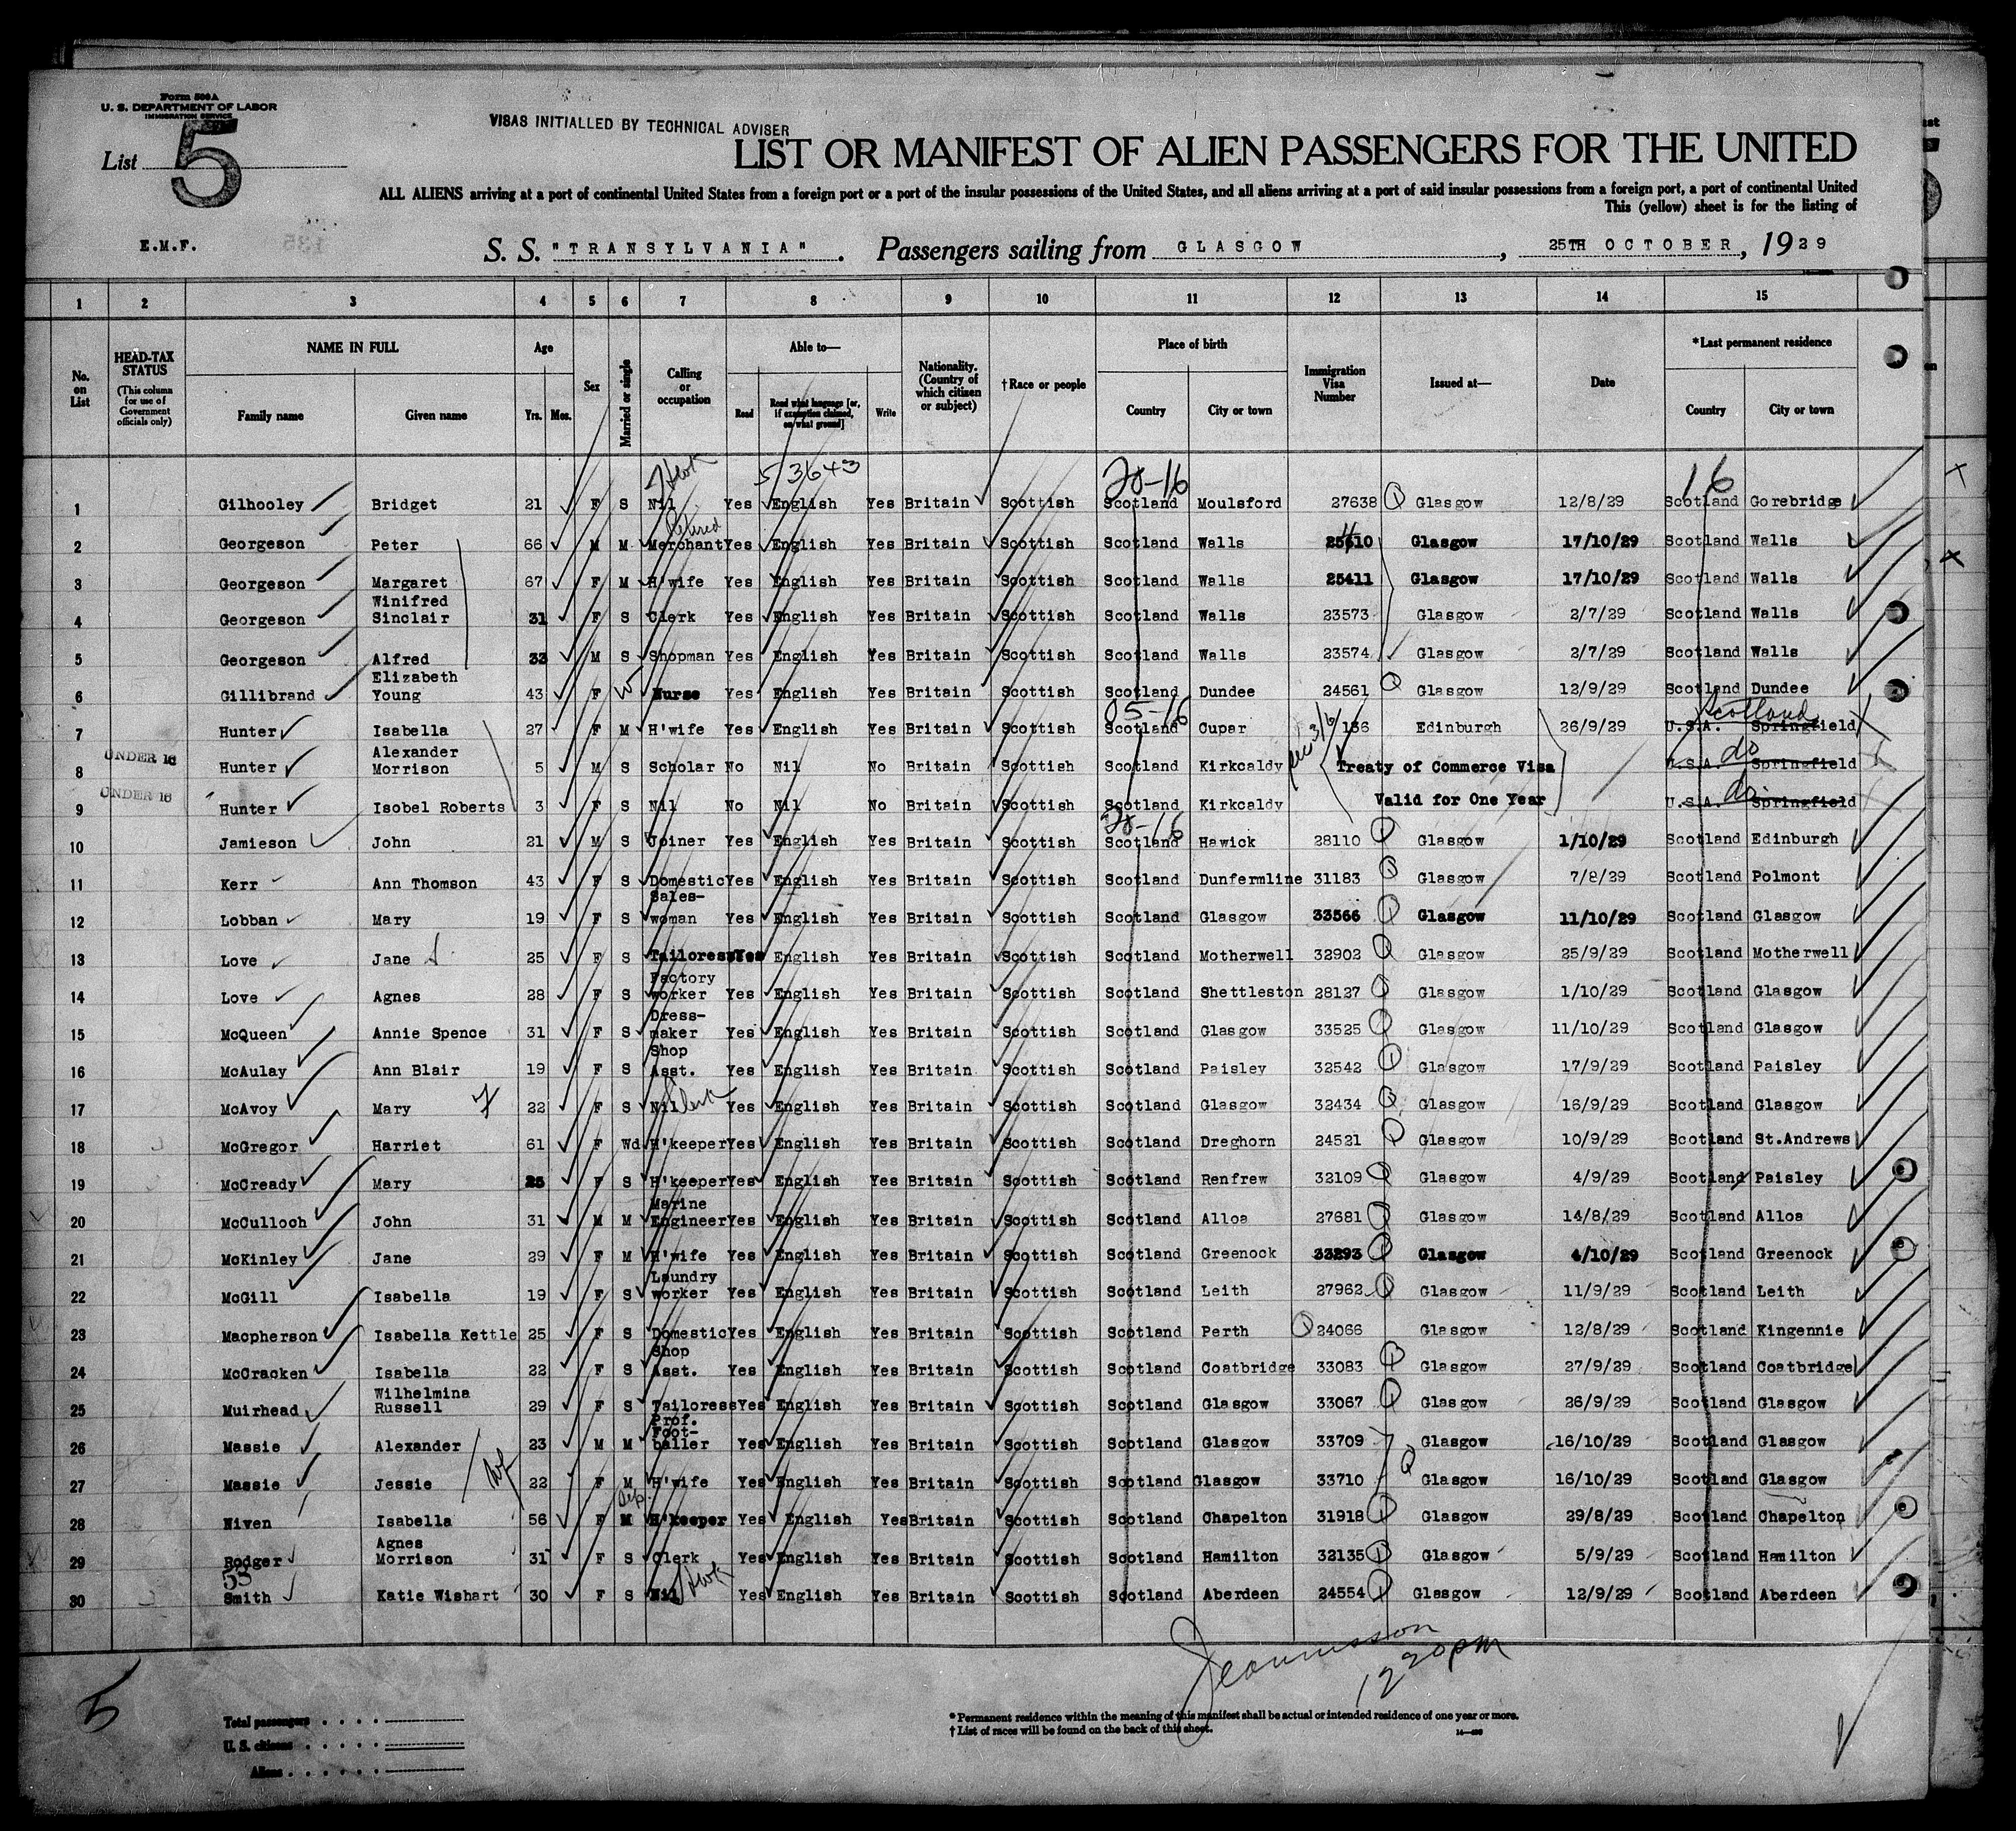 Form 500A
U. S. DEPARTMENT OF LABOR
IMMIGRATION SERVICE
List 5
VISAS INITIALLED BY TECHNICAL ADVISER
LIST OR MANIFEST OF ALIEN PASSENGERS FOR THE UNITED
ALL ALIENS arriving at a port of continental United States from a foreign port or a port of the insular possessions of the United States, and all aliens arriving at a port of said insular possessions from a foreign port, a port of continental United
This (yellow) sheet is for the listing of
E.M.F.
S. S. "TRANSYLVANIA". Passengers sailing from GLASGOW, 25TH OCTOBER, 1929
1 2 3 4 5 6 7 8 9 10 11 12 13 14 15
No. on List
HEAD-TAX STATUS (This column for use of Government officials only)
NAME IN FULL Family name Given name
Age Yrs. Mos.
Sex
Married or single
Calling or occupation
Able to— Read Read what language [or, if exemption claimed, on what ground] Write
Nationality. (Country of which citizen or subject)
†Race or people
Place of birth Country City or town
Immigration Visa Number
Issued at—
Date
*Last permanent residence Country City or town
53643 16
1 Gilhooley Bridget 21 F S Nil Yes English Yes Britain Scottish Scotland Moulsford 27638 Glasgow 12/8/29 Scotland Gorebridge
Retired
2 Georgeson Peter 66 M M Merchant Yes English Yes Britain Scottish Scotland Walls Glasgow 17/10/29 Scotland Walls
3 Georgeson Margaret 67 F M H'wife Yes English Yes Britain Scottish Scotland Walls 25411 Glasgow 17/10/29 Scotland Walls
4 Georgeson Winifred Sinclair 31 F S Clerk Yes English Yes Britain Scottish Scotland Walls 23573 Glasgow 2/7/29 Scotland Walls
5 Georgeson Alfred 33 M S Shopman Yes English Yes Britain Scottish Scotland Walls 23574 Glasgow 2/7/29 Scotland Walls
6 Gillibrand Elizabeth Young 43 F W Nurse Yes English Yes Britain Scottish Scotland Dundee 24561 Glasgow 12/9/29 Scotland Dundee
05-16 Scotland
7 Hunter Isabella 27 F M H'wife Yes English Yes Britain Scottish Scotland Cupar 136 Edinburgh 26/9/29 U.S.A. Springfield
8 UNDER 16 Hunter Alexander Morrison 5 M S Scholar No Nil No Britain Scottish Scotland Kirkcaldy Treaty of Commerce Visa U.S.A. do Springfield
9 UNDER 16 Hunter Isobel Roberts 3 F S Nil No Nil No Britain Scottish Scotland Kirkcaldy Valid for One Year U.S.A. do. Springfield
10 Jamieson John 21 M S Joiner Yes English Yes Britain Scottish Scotland Hawick 28110 Glasgow 1/10/29 Scotland Edinburgh
11 Kerr Ann Thomson 43 F S Domestic Yes English Yes Britain Scottish Scotland Dunfermline 31183 Glasgow 7/8/29 Scotland Polmont
12 Lobban Mary 19 F S Sales-woman Yes English Yes Britain Scottish Scotland Glasgow 33566 Glasgow 11/10/29 Scotland Glasgow
13 Love Jane 25 F S Tailoress Yes English Yes Britain Scottish Scotland Motherwell 32902 Glasgow 25/9/29 Scotland Motherwell
14 Love Agnes 28 F S Factory worker Yes English Yes Britain Scottish Scotland Shettleston 28127 Glasgow 1/10/29 Scotland Glasgow
15 McQueen Annie Spence 31 F S Dress-maker Yes English Yes Britain Scottish Scotland Glasgow 33525 Glasgow 11/10/29 Scotland Glasgow
16 McAulay Ann Blair 19 F S Shop Asst. Yes English Yes Britain Scottish Scotland Paisley 32542 Glasgow 17/9/29 Scotland Paisley
17 McAvoy Mary 22 F S Nil Clerk Yes English Yes Britain Scottish Scotland Glasgow 32434 Glasgow 16/9/29 Scotland Glasgow
18 McGregor Harriet 61 F Wd H'keeper Yes English Yes Britain Scottish Scotland Dreghorn 24521 Glasgow 10/9/29 Scotland St.Andrews
19 McCready Mary 25 F S H'keeper Yes English Yes Britain Scottish Scotland Renfrew 32109 Glasgow 4/9/29 Scotland Paisley
20 McCulloch John 31 M M Marine Engineer Yes English Yes Britain Scottish Scotland Alloa 27681 Glasgow 14/8/29 Scotland Alloa
21 McKinley Jane 29 F M H'wife Yes English Yes Britain Scottish Scotland Greenock 33293 Glasgow 4/10/29 Scotland Greenock
22 McGill Isabella 19 F S Laundry worker Yes English Yes Britain Scottish Scotland Leith 27962 Glasgow 11/9/29 Scotland Leith
23 Macpherson Isabella Kettle 25 F S Domestic Yes English Yes Britain Scottish Scotland Perth 24066 Glasgow 12/8/29 Scotland Kingennie
24 McCracken Isabella 22 F S Shop Asst. Yes English Yes Britain Scottish Scotland Coatbridge 33083 Glasgow 27/9/29 Scotland Coatbridge
25 Muirhead Wilhelmina Russell 29 F S Tailoress Yes English Yes Britain Scottish Scotland Glasgow 33067 Glasgow 26/9/29 Scotland Glasgow
26 Massie Alexander 23 M M Prof. Foot-baller Yes English Yes Britain Scottish Scotland Glasgow 33709 Glasgow 16/10/29 Scotland Glasgow
27 Massie Jessie 22 F M H'wife Yes English Yes Britain Scottish Scotland Glasgow 33710 Glasgow 16/10/29 Scotland Glasgow
28 Niven Isabella 56 F M H'keeper Yes English Yes Britain Scottish Scotland Chapelton 31918 Glasgow 29/8/29 Scotland Chapelton
29 Rodger Agnes Morrison 31 F S Clerk Yes English Yes Britain Scottish Scotland Hamilton 32135 Glasgow 5/9/29 Scotland Hamilton
53
30 Smith Katie Wishart 30 F S Nil Yes English Yes Britain Scottish Scotland Aberdeen 24554 Glasgow 12/9/29 Scotland Aberdeen
12 20 pm
5
Total passengers
U. S. citizens
Aliens
* Permanent residence within the meaning of this manifest shall be actual or intended residence of one year or more.
† List of races will be found on the back of this sheet.